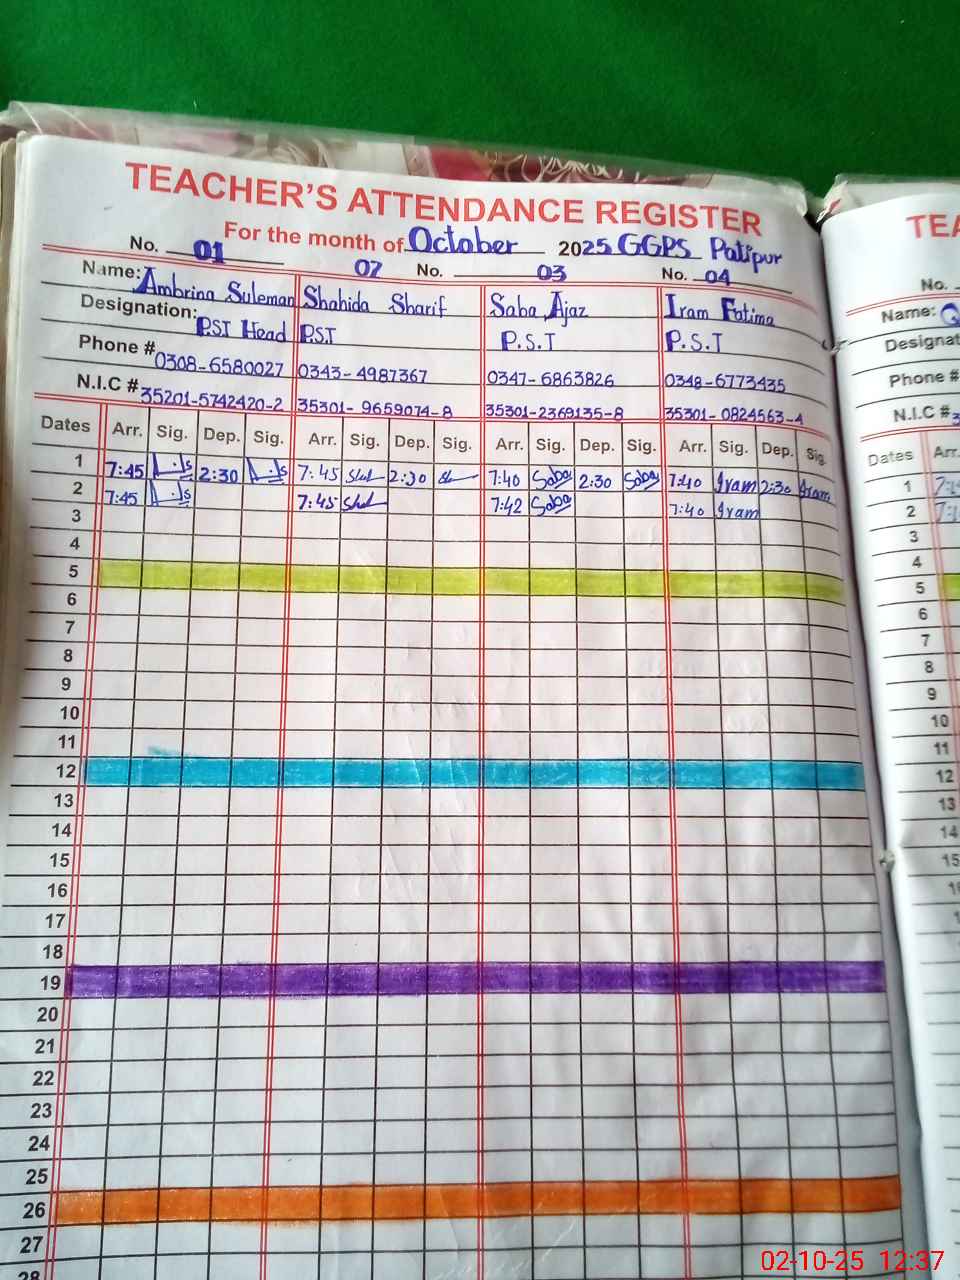 TEACHER'S ATTENDANCE REGISTER
For the month of October 2025 GGPS Patipur
No. 01 02 No. 03 No. 04
Name: Ambrina Suleman Shahida Sharif Saba Ajaz Iram Fatima
Designation: PST Head P.S.T P.S.T P.S.T
Phone # 0308-6580027 0343-4987367 0347-6863826 0348-6773435
N.I.C # 35201-5742420-2 35301-9659074-8 35301-2369135-8 35301-0824563-4
Dates Arr. Sig. Dep. Sig. Arr. Sig. Dep. Sig. Arr. Sig. Dep. Sig. Arr. Sig. Dep. Sig.
1 7:45 2:30 7:45 2:30 7:40 Saba 2:30 Saba 7:40 Iram 2:30 Iram
2 7:45 7:45 7:42 Saba 7:40 Iram
3
4
5
6
7
8
9
10
11
12
13
14
15
16
17
18
19
20
21
22
23
24
25
26
27
28
TEA
No.
Name:
Designat
Phone #
N.I.C # 3
Dates Arr.
1
2
3
4
5
6
7
8
9
10
11
12
13
14
15
02-10-25 12:37